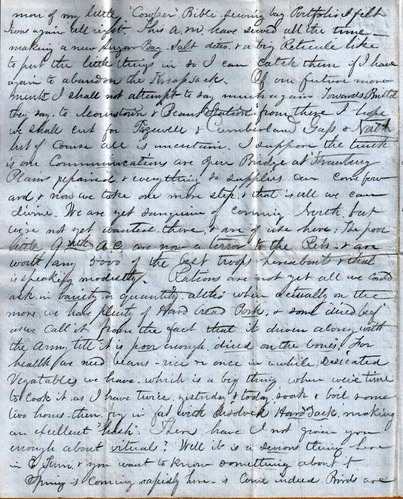 more of my little "Cowper" Bible sewing bag Portfolio I felt
once again all right. This A.M. have sewed all the time
making a new Sugar Bag, Salt ditto, & a big Reticule like
to put the little things in so I can catch them if I have
again to abandon the Knapsack. Of our future move
ments I shall not attempt to say much again. Towards Bulls
they say. to Morristown & Bean Station from there I hope
we shall cut for Tazewell & Cumberland Gap & North
but of course all is uncertain. I suppose the truth
is our Communications are open Bridge at Strawberry
Plains repaired & everything so supplies can come for
ward, & now we take one more step, & that is all we can
divine. We are yet sanguine of coming North but
we're not yet wanted there, & are of use here. The poor
little 9th A.C. are now a terror to the Rebs, & are
worth any 5000 of the best troops hereabouts & that
is speaking modestly. Rations are not yet all we could
ask in variety or quantity, altho' when actually on the
move we have plenty of Hard bread Pork, & some dried beef
as we call it from the fact that it is driven along with
the Army, till it is poor enough, dried on the bones. For
health we need beans - rice or once in a while, Desicated
Vegatables we have, which is a big thing when we've time
to cook it as I have twice, yesterday & today, soak & boil some
two hours then fry in fat with dissolved Hard Tack, making
an excellent "hash". There have I not given you
enough about vituals? Well it is a serious thing here
in E Tenn & you want to know something about it
Spring is coming rapidly here - is Come indeed Birds are